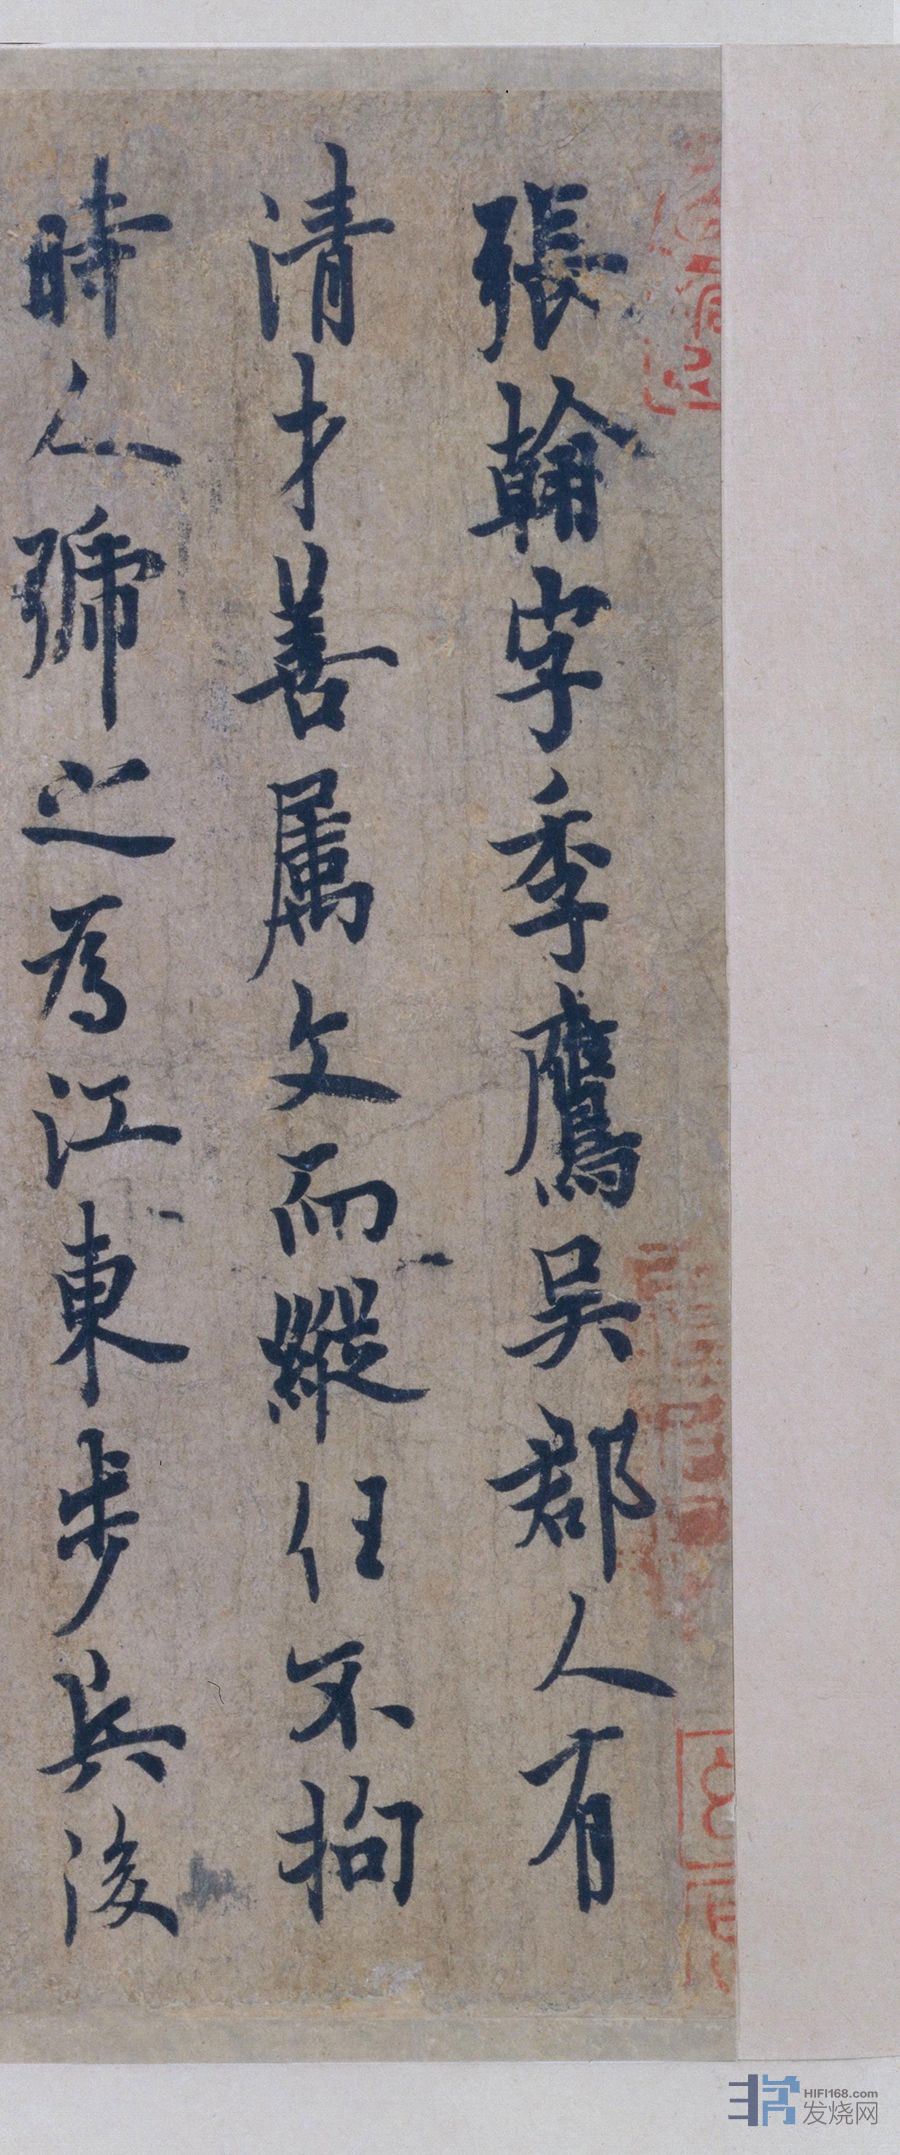 張翰字季鷹吳郡人有
清才善属文而縱任不拘
時人號之為江東步兵後
HIFI168.com
发烧网